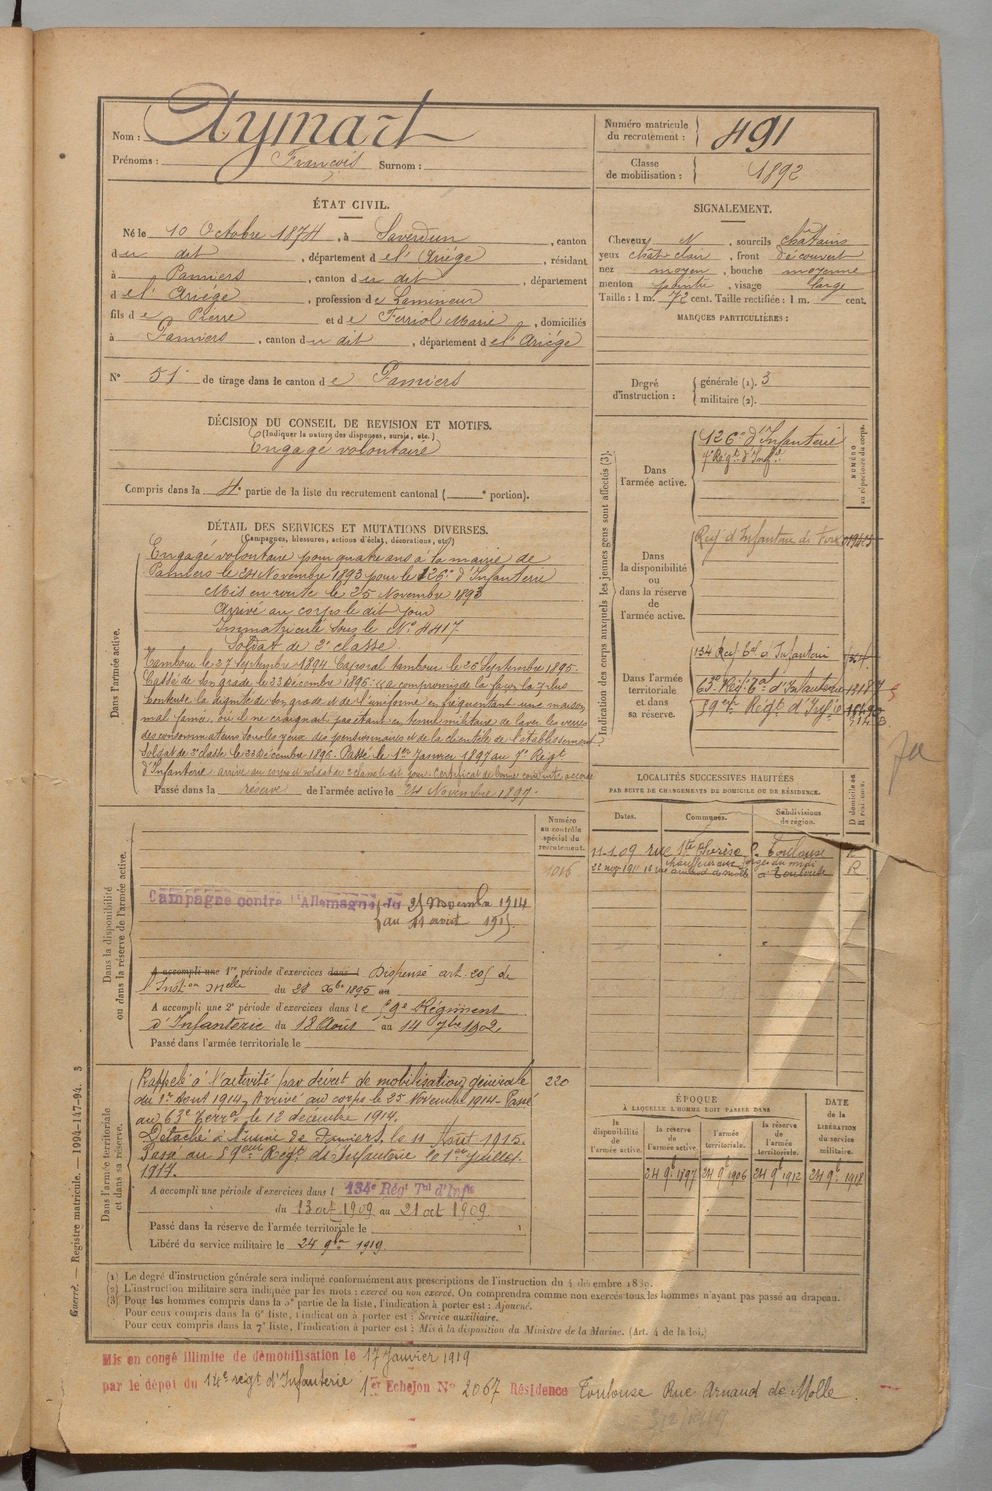 Nom : Aymart
Prénoms : François Surnom :
Numéro matricule du recrutement : 491
Classe de mobilisation : 1892
ÉTAT CIVIL.
Né le 10 Octobre 1874, à Saverdun, canton
du dit, département de l'Ariége, résidant
à Pamiers, canton du dit, département
de l'Ariége, profession de Lamineur
fils de Pierre et de Ferriol Marie, domiciliés
à Pamiers, canton du dit, département de l'Ariége
N° 51 de tirage dans le canton de Pamiers
SIGNALEMENT.
Cheveux N, sourcils châtains
yeux chât clair, front découvert
nez moyen, bouche moyenne
menton pointu, visage large
Taille : 1 m. 72 cent. Taille rectifiée : 1 m. cent.
MARQUES PARTICULIÈRES :
Degré d'instruction : générale (1). 3
militaire (2).
DÉCISION DU CONSEIL DE REVISION ET MOTIFS.
(Indiquer la nature des dispenses, sursis, etc.)
Engagé volontaire
Compris dans la 4e partie de la liste du recrutement cantonal ( e portion).
DÉTAIL DES SERVICES ET MUTATIONS DIVERSES.
(Campagnes, blessures, actions d'éclat, décorations, etc.)
Dans l'armée active.
Engagé volontaire pour quatre ans à la mairie de
Pamiers le 24 Novembre 1893 pour le 126e d'Infanterie
Mis en route le 25 Novembre 1893
Arrivé au corps le dit jour
Immatriculé sous le N° 4417
Soldat de 2e classe
Tambour le 27 Septembre 1894 Caporal tambour le 26 Septembre 1895.
Cassé de son grade le 23 Décembre 1896 : "a compromis de la façon la plus
honteuse la dignité de son grade et de l'uniforme en fréquentant une maison
mal famée, où il ne craignait pas étant en tenue militaire de laver les verres
des consommateurs sous les yeux des pensionnaires et de la clientèle de l'établissement
Soldat de 2e classe le 23 Décembre 1896. Passé le 1er Janvier 1897 au 7e Régt
d'Infanterie arrivé au corps et soldat de 2e classe le dit jour. Certificat de bonne conduite accordé
Passé dans la réserve de l'armée active le 24 Novembre 1897.
Indication des corps auxquels les jeunes gens sont affectés (3).
Dans l'armée active.
126e d'Infanterie
7e Régt d'Infie
NUMÉRO au répertoire du corps.
Dans la disponibilité ou dans la réserve de l'armée active.
Reg d'Infanterie de Foix
Dans l'armée territoriale et dans sa réserve.
134 Reg Tal d'Infanterie
63e Rég. Tal d'Infanterie
89eme Régt d'Infie
LOCALITÉS SUCCESSIVES HABITÉES
PAR SUITE DE CHANGEMENTS DE DOMICILE OU DE RÉSIDENCE.
Dates. Communes. Subdivisions de région. D domicile ou R résidence.
11-1.09 rue Ste Thérèse Toulouse R
Toulouse R
Numéro au contrôle spécial du recrutement.
1016
Dans la disponibilité ou dans la réserve de l'armée active.
Campagne contre l'Allemagne du 25 Novembre 1914
au 11 aout 1915
A accompli une 1re période d'exercices dans l Dispensé art. 205 de
l'Inston Melle du 28 Xbre 1895 au
A accompli une 2e période d'exercices dans le 59e Régiment
d'Infanterie du 18 Août au 14 7bre 1902
Passé dans l'armée territoriale le
Dans l'armée territoriale et dans sa réserve.
Rappelé à l'activité par décret de mobilisation générale
du 1er Aout 1914. Arrivé au corps le 25 Novembre 1914 Passé
au 63e Terral le 12 décembre 1914.
Détaché à l'usine de Pamiers le 11 Août 1915.
Passé au 89eme Régt d'Infanterie le 1er Juillet
1917.
220
A accompli une période d'exercices dans l 134e Régt Tal d'Infie
du 13 oct 1909 au 21 oct 1909
Passé dans la réserve de l'armée territoriale le
Libéré du service militaire le 24 9bre 1919
ÉPOQUE
À LAQUELLE L'HOMME DOIT PASSER DANS
la disponibilité de l'armée active. la réserve de l'armée active. l'armée territoriale. la réserve de l'armée territoriale. DATE de la LIBÉRATION du service militaire.
24 9e 1897 24 9e 1906 24 9e 1912 24 9e 1918
(1) Le degré d'instruction générale sera indiqué conformément aux prescriptions de l'instruction du 4 décembre 1889.
(2) L'instruction militaire sera indiquée par les mots : exercé ou non exercé. On comprendra comme non exercés tous les hommes n'ayant pas passé au drapeau.
(3) Pour les hommes compris dans la 5e partie de la liste, l'indication à porter est : Ajourné.
Pour ceux compris dans la 6e liste, l'indication à porter est : Service auxiliaire.
Pour ceux compris dans la 7e liste, l'indication à porter est : Mis à la disposition du Ministre de la Marine. (Art. 4 de la loi.)
Guerre. — Registre matricule. — 1994-147-94. 3
Mis en congé illimité de démobilisation le 17 Janvier 1919
par le dépot du 14e régt d'Infanterie 1er Echelon N° 2067 Résidence Toulouse Rue Arnaud de Molle.